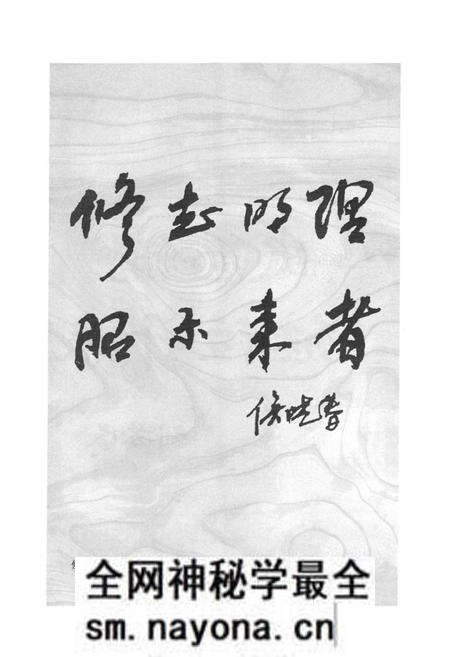 修志明理
昭示来者
侯晓春
全网神秘学最全
sm.nayona.cn